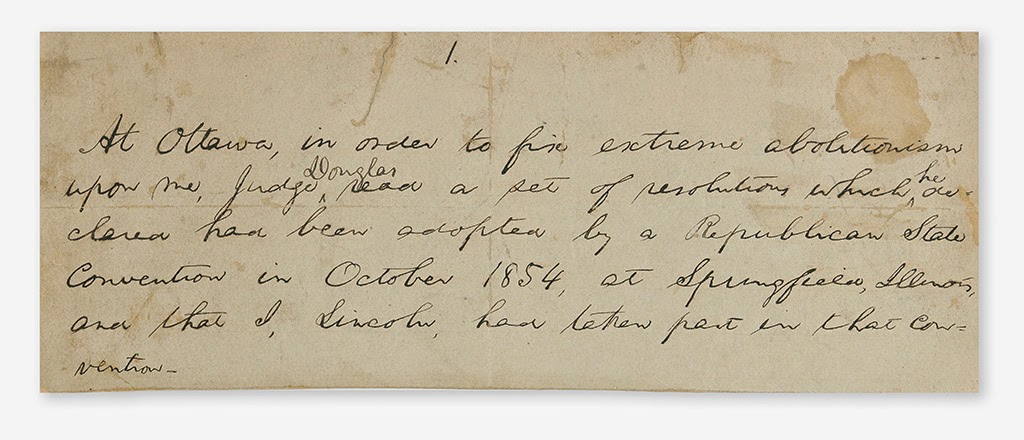 1.
At Ottawa, in order to fix extreme abolitionism
upon me, Judge Douglas read a set of resolutions which he de-
clared had been adopted by a Republican State
Convention in October 1854, at Springfield, Illinois,
and that I, Lincoln, had taken part in that Con=
vention—